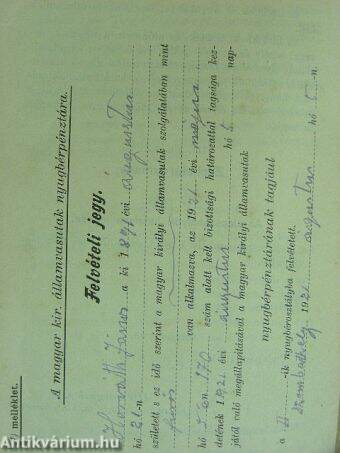 melléklet.
A magyar kir. államvasutak nyugbérpénztára.
Felvételi jegy.
Horváth János a ki 1.891 évi augusztus
hó 21.-n
született s ez idő szerint a magyar királyi államvasutak szolgálatában mint
van alkalmazva, az 1921 évi május
hó 5.-én 170 szám alatt kelt bizottsági határozattal tagsága kez-
detének 1.921 évi augusztus hó 1. nap-
jától való megállapításával a magyar királyi államvasutak
nyugbérpénztárának tagjául
a II -ik nyugbérosztályba felvétetett.
Szombathely, 192 augusztus hó 5 -n.
Antikvárium.hu